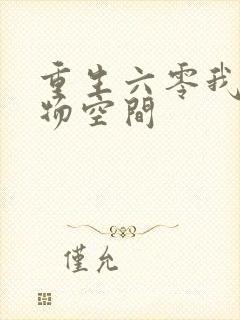 重生六零我
物空間
僅允